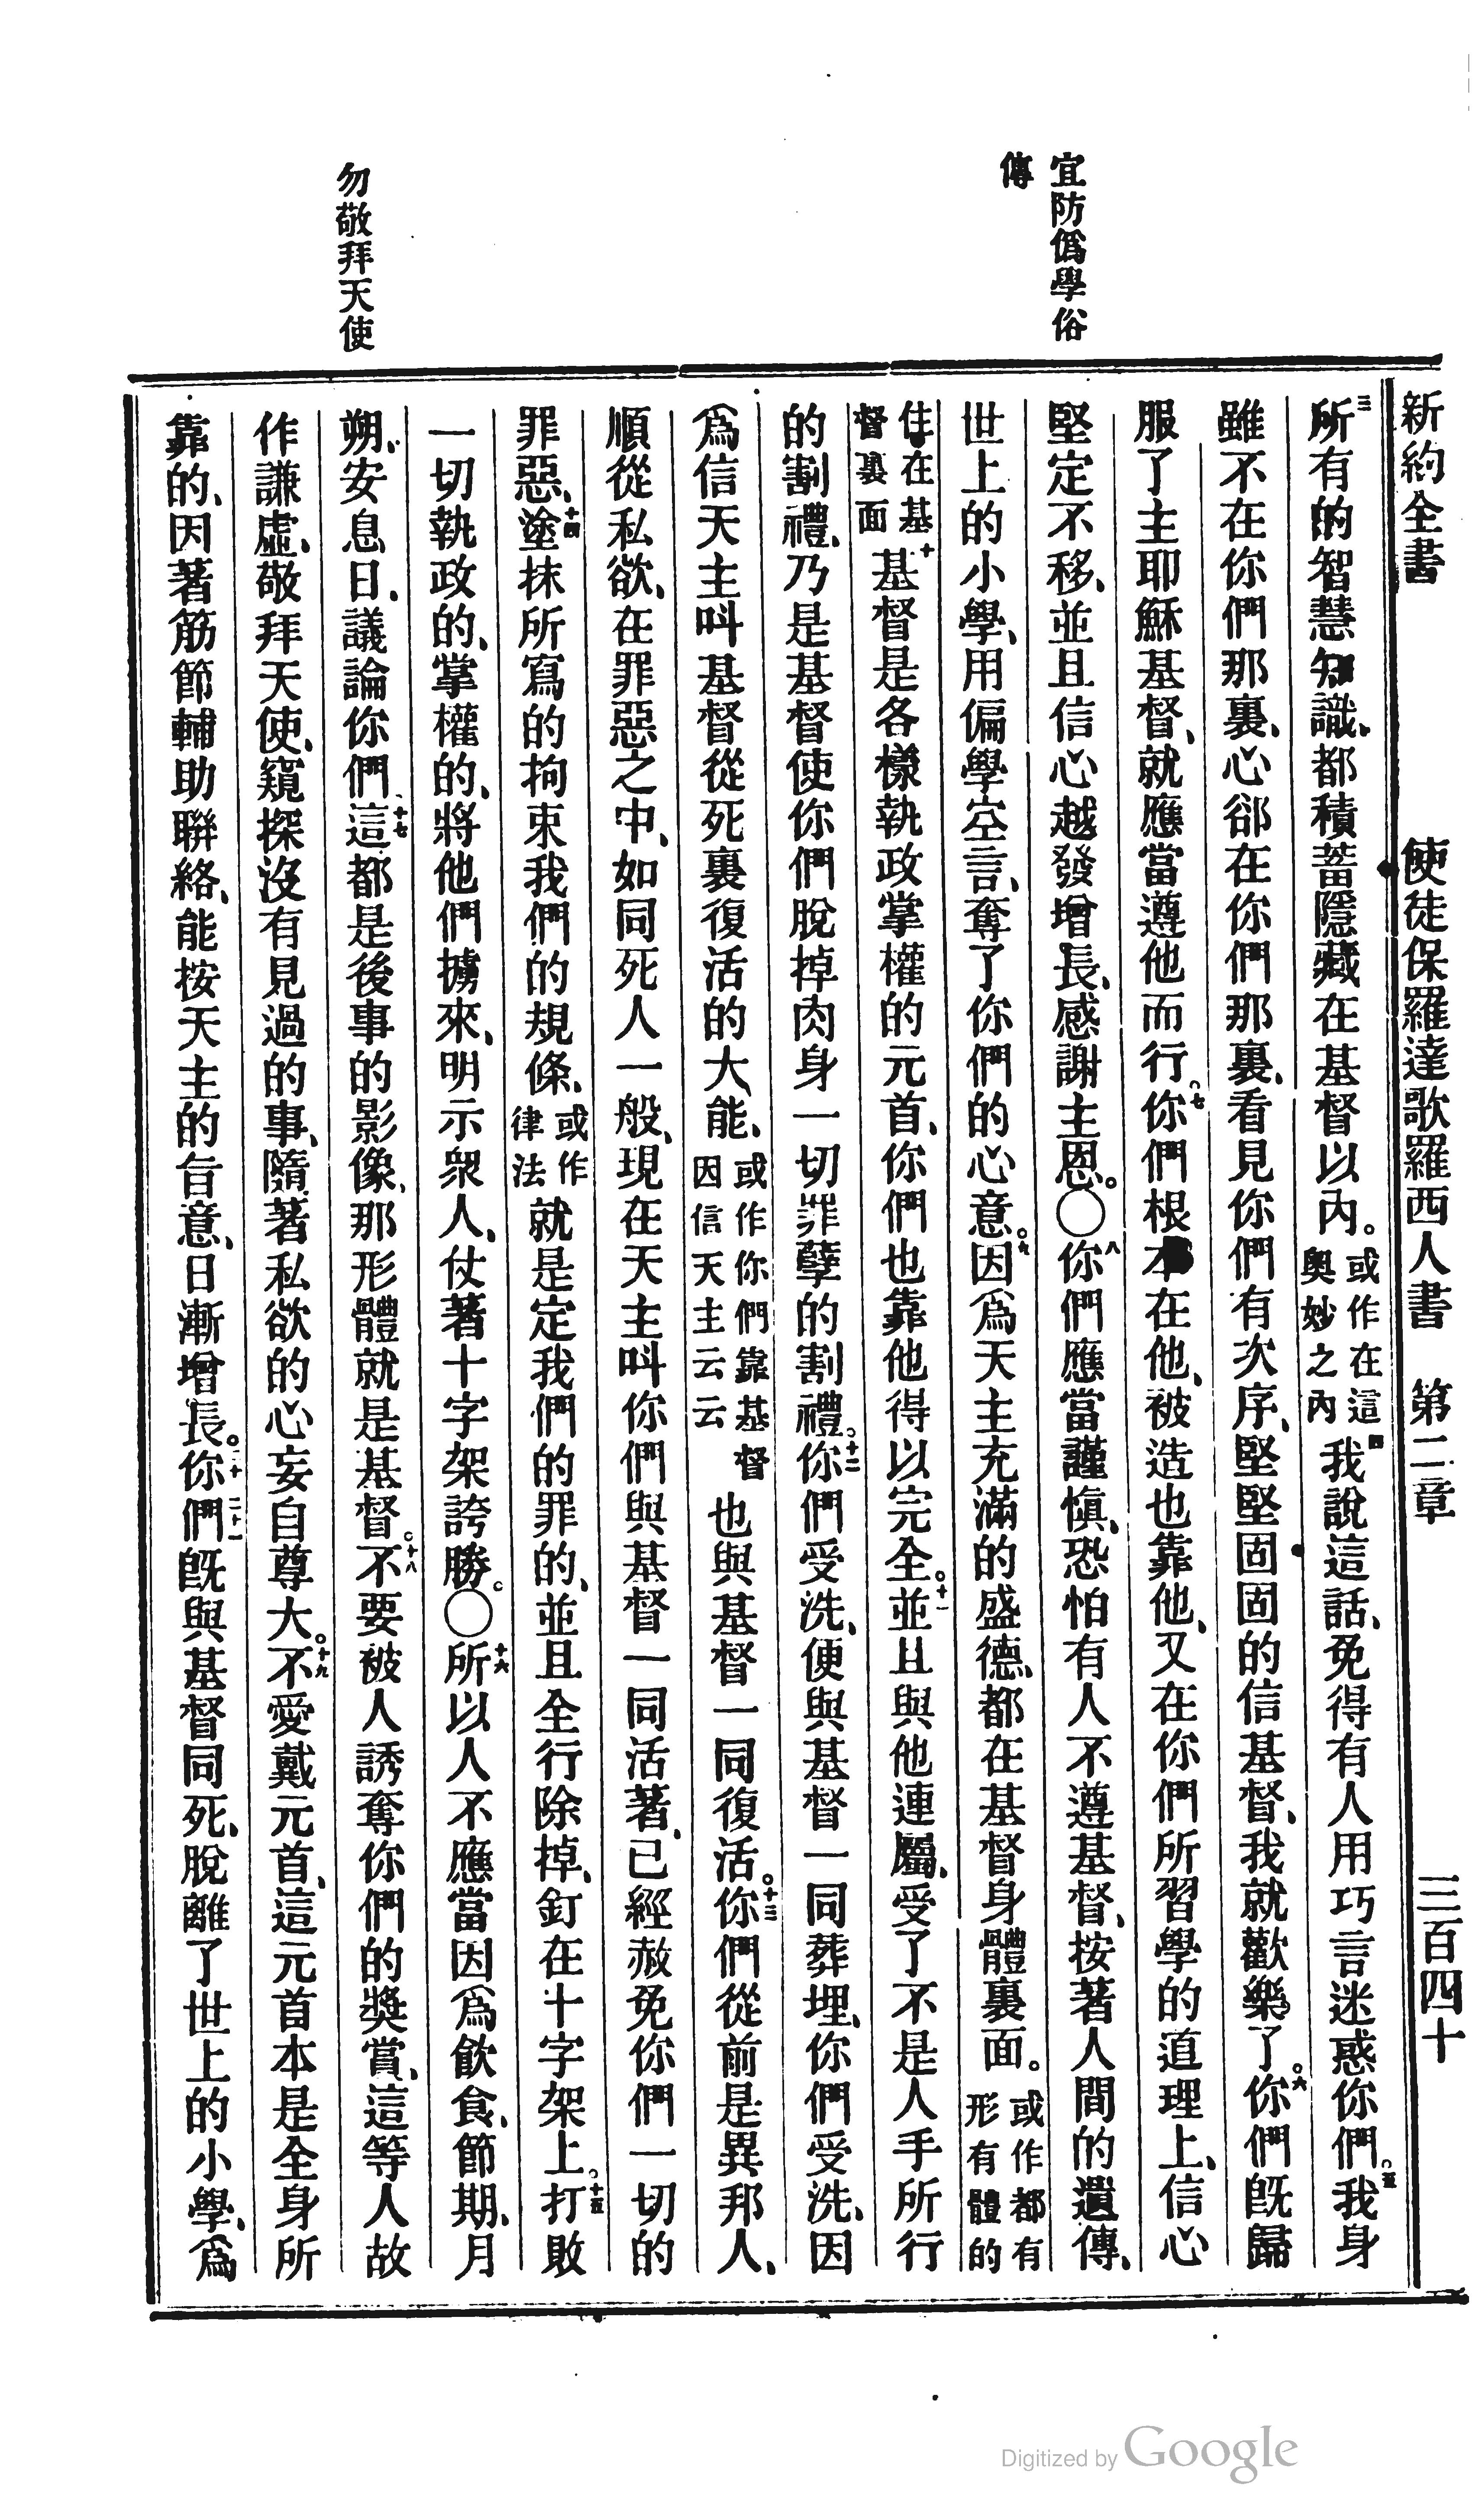 新約全書 使徒保羅達歌羅西人書 第二章 三百四十
宜防僞學俗
傳
勿敬拜天使
三所有的智慧知識、都積蓄隱藏在基督以內。或作在這奧妙之內四我說這話、免得有人用巧言迷惑你們。五我身
雖不在你們那裏、心郤在你們那裏、看見你們有次序、堅堅固固的信基督、我就歡樂了。六你們旣歸
服了主耶穌基督、就應當遵他而行。七你們根本在他、被造也靠他、又在你們所習學的道理上、信心
堅定不移、並且信心越發增長、感謝主恩。〇八你們應當謹愼、恐怕有人不遵基督、按著人間的遺傳、
世上的小學、用偏學空言、奪了你們的心意。九因爲天主充滿的盛德、都在基督身體裏面。或作都有形有體的
住在基督裏面十基督是各樣執政掌權的元首、你們也靠他得以完全。十一並且與他連屬、受了不是人手所行
的割禮、乃是基督使你們脫掉肉身一切罪孽的割禮。十二你們受洗、便與基督一同葬埋、你們受洗、因
爲信天主呌基督從死裏復活的大能、或作你們靠基督因信天主云云也與基督一同復活。十三你們從前是異邦人、
順從私欲、在罪惡之中、如同死人一般、現在天主呌你們與基督一同活著、已經赦免你們一切的
罪惡、十四塗抹所寫的拘束我們的規條、或作律法就是定我們的罪的、並且全行除掉、釘在十字架上。十五打敗
一切執政的、掌權的、將他們擄來、明示衆人、仗著十字架誇勝。〇十六所以人不應當因爲飮食、節期、月
朔、安息日、議論你們、十七這都是後事的影像、那形體就是基督。十八不要被人誘奪你們的獎賞、這等人故
作謙虛、敬拜天使、窺探沒有見過的事、隨著私欲的心妄自尊大。十九不愛戴元首、這元首本是全身所
靠的、因著筋節輔助聯絡、能按天主的旨意、日漸增長。二十二十一你們旣與基督同死、脫離了世上的小學、爲
Digitized by Google